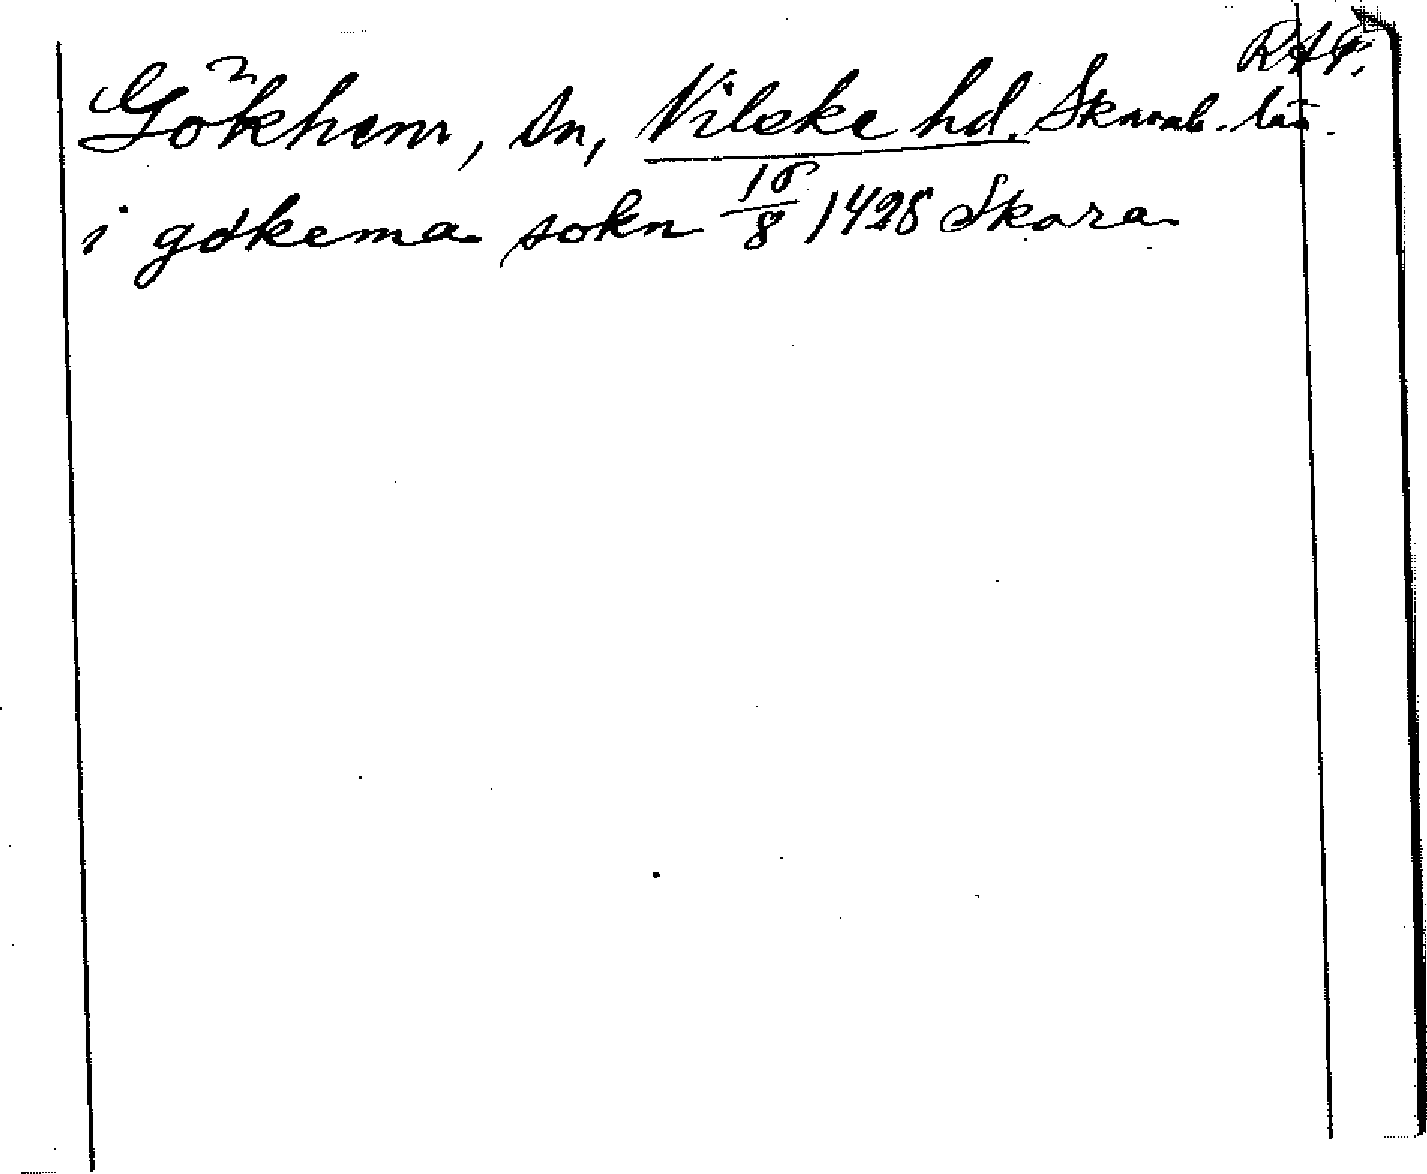 RAP.
Gökhem, sn, Vilske hd. Skarab. län.
i gøkema sokn 18/8 1428 Skara